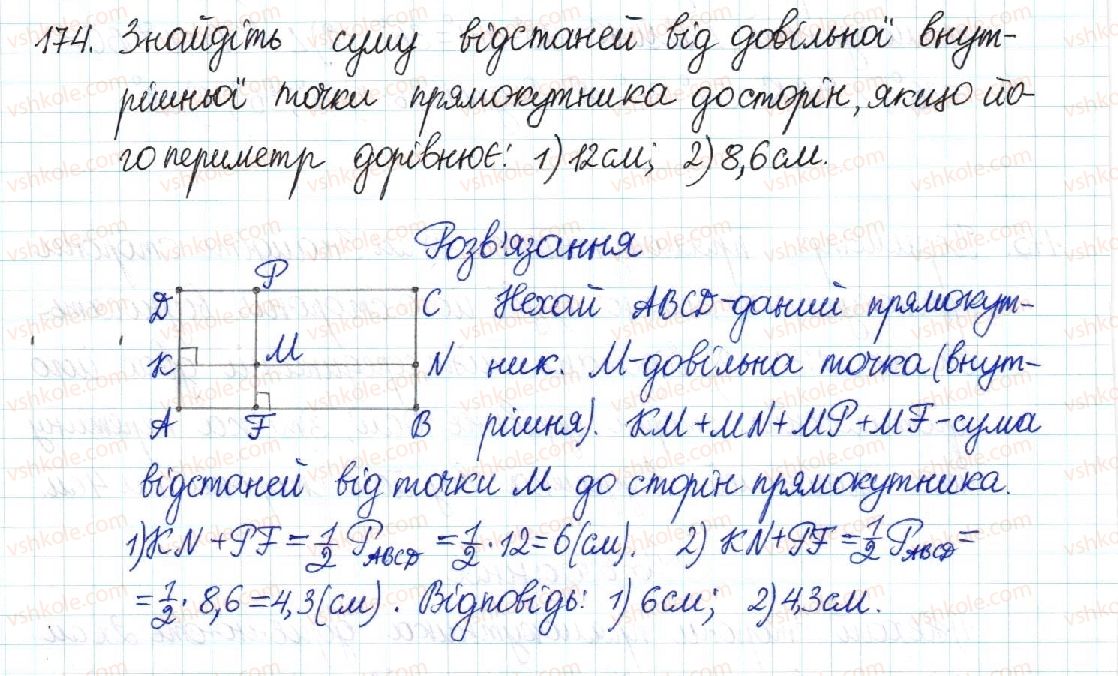 174. Знайдіть суму відстаней від довільної внут-
рішньої точки прямокутника до сторін, якщо йо-
го периметр дорівнює: 1) 12 см; 2) 8,6 см.
Розв'язання
P
D C Нехай ABCD - даний прямокут-
K M N ник. M - довільна точка (внут-
A F B рішня). KM + MN + MP + MF - сума
відстаней від точки M до сторін прямокутника.
1) KN + PF = 1/2 P_ABCD = 1/2 · 12 = 6 (см). 2) KN + PF = 1/2 P_ABCD =
= 1/2 · 8,6 = 4,3 (см). Відповідь: 1) 6 см; 2) 4,3 см.